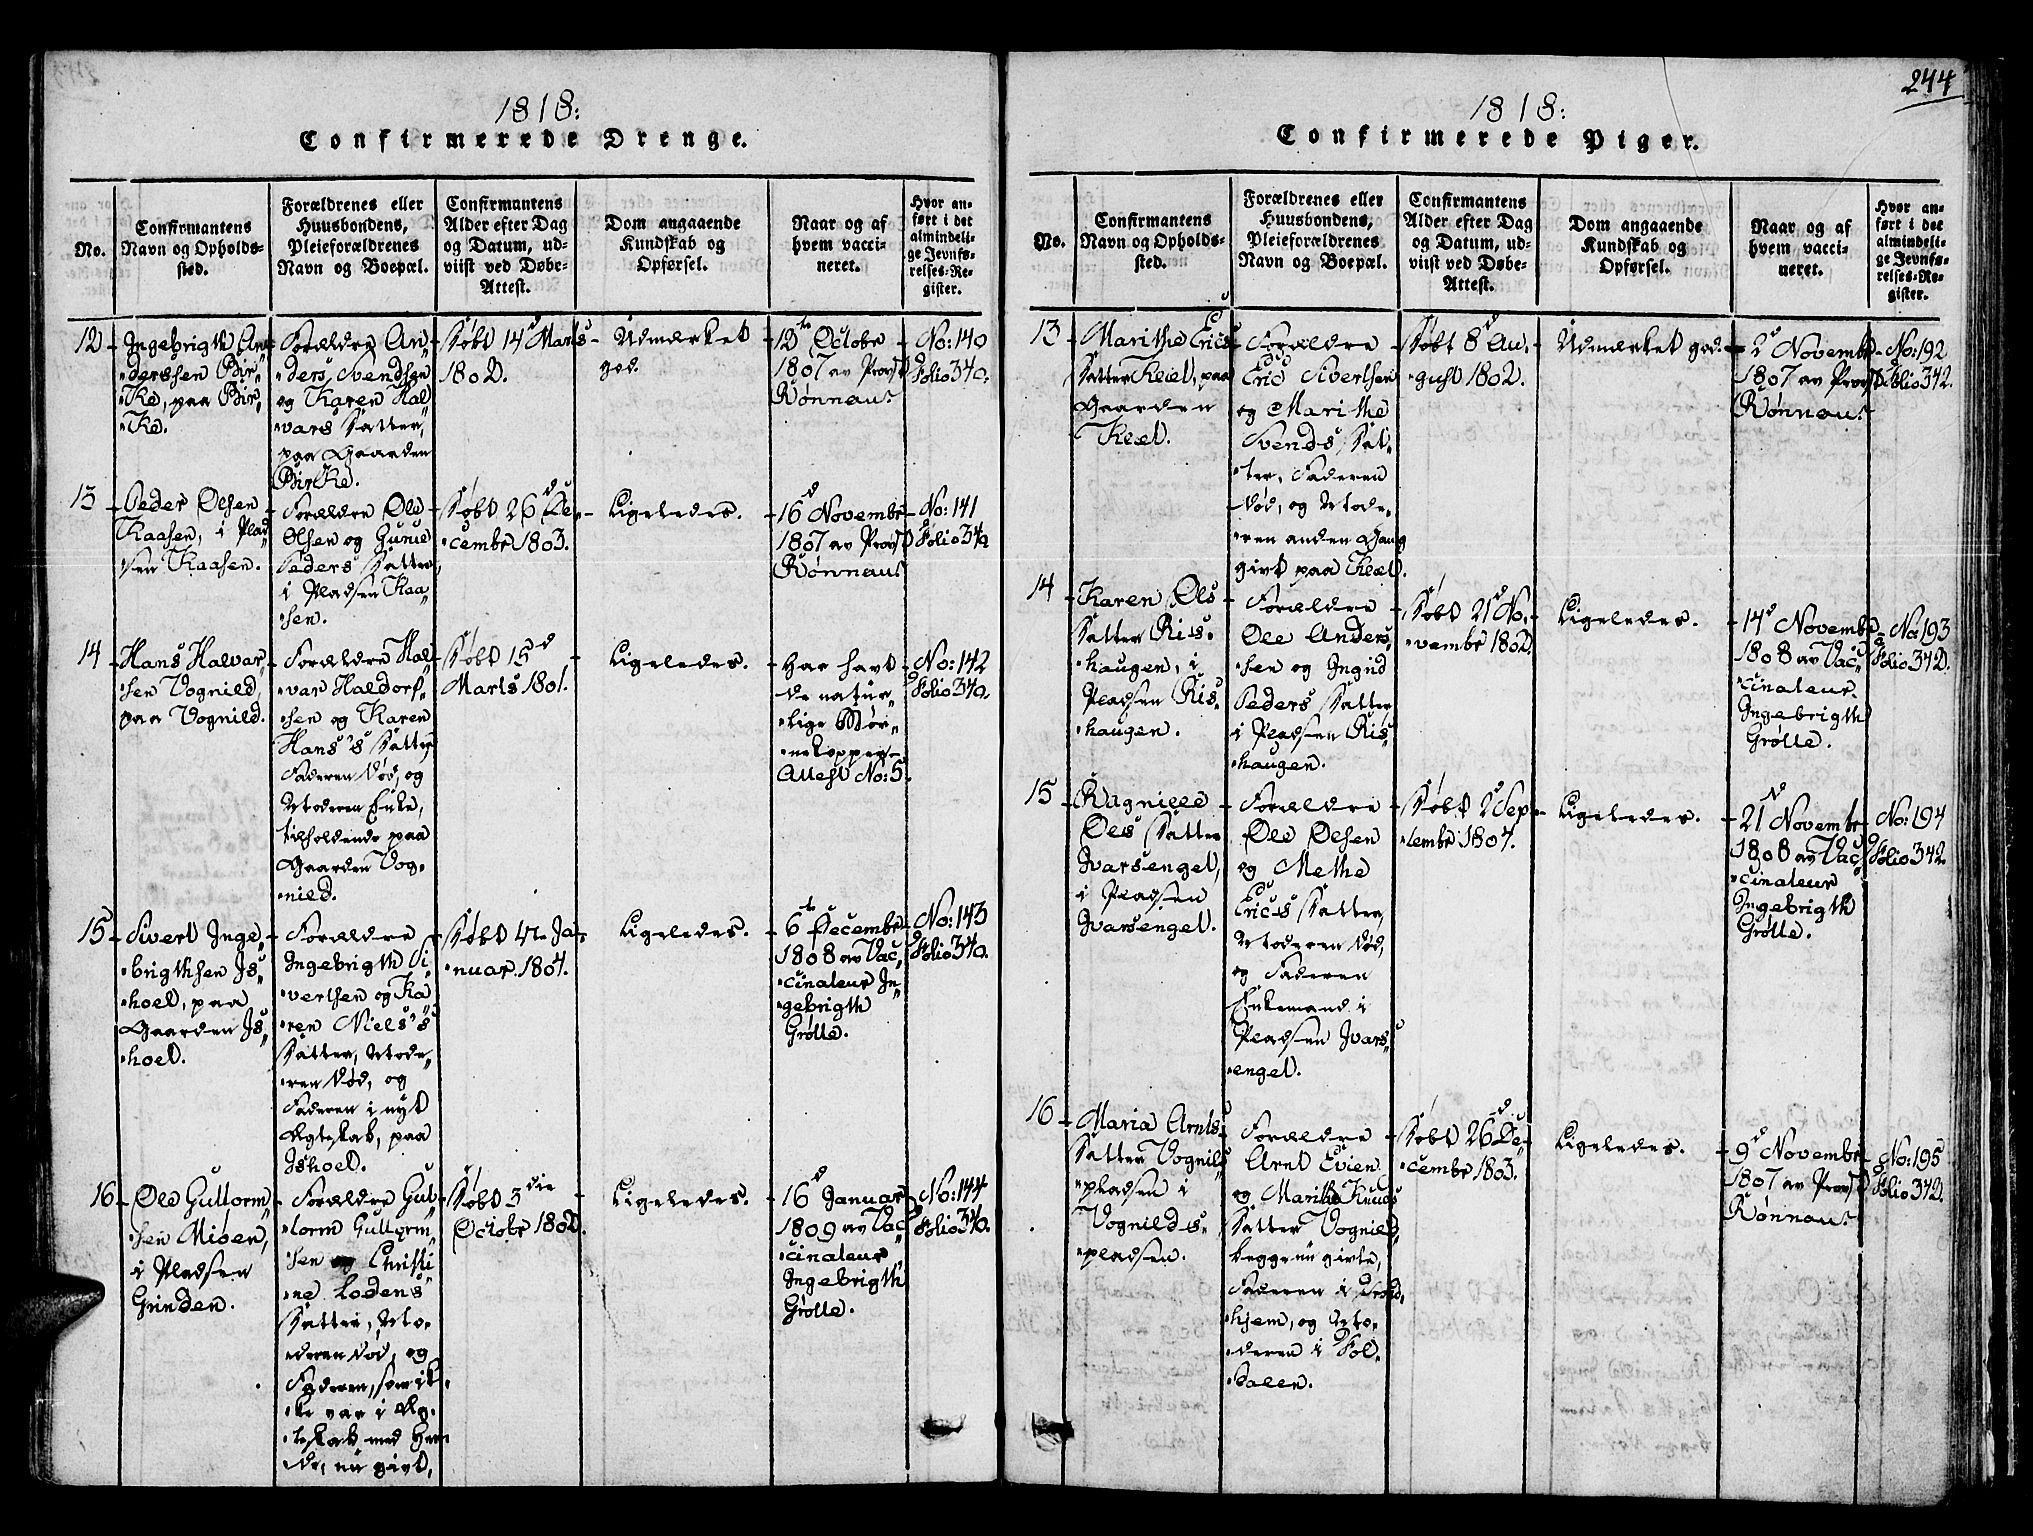 1818:
Confirmerede Drenge.
No.
Confirmantens
Navn og Opholds-
sted.
Forældrenes eller
Huusbondens,
Pleieforældrenes
Navn og Boepæl.
Confirmantens
Alder efter Dag
og Datum, ud-
viist ved Døbe-
Attest.
Dom angaaende
Kundskab og
Opførsel.
Naar og af
hvem vacci-
neret.
Hvor an-
ført i det
almindeli-
ge Jevnfø-
relses-Re-
gister.
12
Ingebrigth An-
derssen Bir-
ke, paa Bir-
ke.
Forældre An-
ders Svendsen
og Karen Hal-
vars Datter,
paa Gaarden
Birke.
Døbt 14d Marts
1802.
Udmærket
god.
12te Octobr
1807 av Provst
Rønnau.
No: 140
Folio 340.
13
Peder Olsen
Kaasen, i Plad-
sen Kaasen.
Forældre Ole
Olsen og Gunild
Peders Datter
i Pladsen Kaa-
sen.
Døbt 26d De-
cembr 1803.
Ligeledes.
16d Novembr
1807 av Provst
Rønnau.
No: 141
Folio 340
14
Hans Halvar-
sen Vognild,
paa Vognild.
Forældre Hal-
var Haldor-
sen og Karen
Hans's Datter,
Faderen død, og
Moderen Enke,
tilholdende paa
Gaarden Vog-
nild.
Døbt 15d
Marts 1801.
Ligeledes.
Har havt
de natur-
lige Bør-
nekopper
Attest No: 5.
No: 142
Folio 340.
15
Sivert Inge-
brigthsen Is-
hoel, paa
Gaarden Is-
hoel.
Forældre
Ingebrigth Si-
vertsen og Ka-
ren Niels's
Datter, Mode-
ren død, og
Faderen i nyt
Ægteskab, paa
Ishoel.
Døbt 4de Ja-
nuar 1804.
Ligeledes.
6te Decembr
1808 av Vac-
cinateur In-
gebrigth
Grøtte.
No: 143
Folio 340.
16
Ole Guttorm-
sen Mioen,
i Pladsen
Grinden.
Forældre Gut-
torm Guttorm-
sen og Christi-
ne Lodens
Datter, Mo-
deren død, og
Faderen, som ik-
ke var i Æg-
teskab med Hen-
de, nu givt,
Døbt 3die
Octobr 1802.
Ligeledes.
16d Januar
1809 av Vac-
cinateur
Ingebrigth
Grøtte.
No: 144
Folio 340.
244
1818:
Confirmerede Piger.
No.
Confirmantens
Navn og Opholds-
sted.
Forældrenes eller
Huusbondens,
Pleieforældrenes
Navn og Boepæl.
Confirmantens
Alder efter Dag
og Datum, ud-
viist ved Døbe-
Attest.
Dom angaaende
Kundskab og
Opførsel.
Naar og af
hvem vacci-
neret.
Hvor an-
ført i det
almindeli-
ge Jevnfø-
relses-Re-
gister.
13
Marithe Erics
Datter Keel, paa
Gaarden
Keel.
Forældre
Eric Sivertsen
og Marithe
Svends Dat-
ter, Faderen
død, og Mode-
ren anden Gang
givt paa Keel.
Døbt 8d Au-
gust 1802.
Udmærket god.
2d Novembr
1807 av Provst
Rønnau.
No: 192
Folio 342.
14
Karen Ols
Datter Ris-
haugen, i
Pladsen Ris-
haugen.
Forældre
Ole Anders-
sen og Ingrid
Peders Datter
i Pladsen Ris-
haugen.
Døbt 21d No-
vembr 1802.
Ligeledes.
14d Novembr
1808 av Vac-
cinateur
Ingebrigth
Grøtte.
No: 193
Folio 342.
15
Ragnild
Ols Datter
Ivarsengel,
i Pladsen
Ivarsengel.
Forældre
Ole Olsen
og Methe
Erics Datter,
Moderen død,
og Faderen
Enkemand i
Pladsen Ivars-
engel.
Døbt 2d Sep-
tembr 1804.
Ligeledes.
21d Novembr
1808 av Vac-
cinateur
Ingebrigth
Grøtte.
No: 194
Folio 342.
16
Maria Arnts
Datter Vognilds-
pladsen i
Vognilds-
pladsen.
Forældre
Arnt Evien
og Marithe Knuds
Datter Vognild,
begge nu givte,
Faderen i Trond-
hjem, og Mo-
deren i Fol-
dalen.
Døbt 26d De-
cembr 1803.
Ligeledes.
9d Novembr
1807 av Provst
Rønnau.
No: 195
Folio 342.